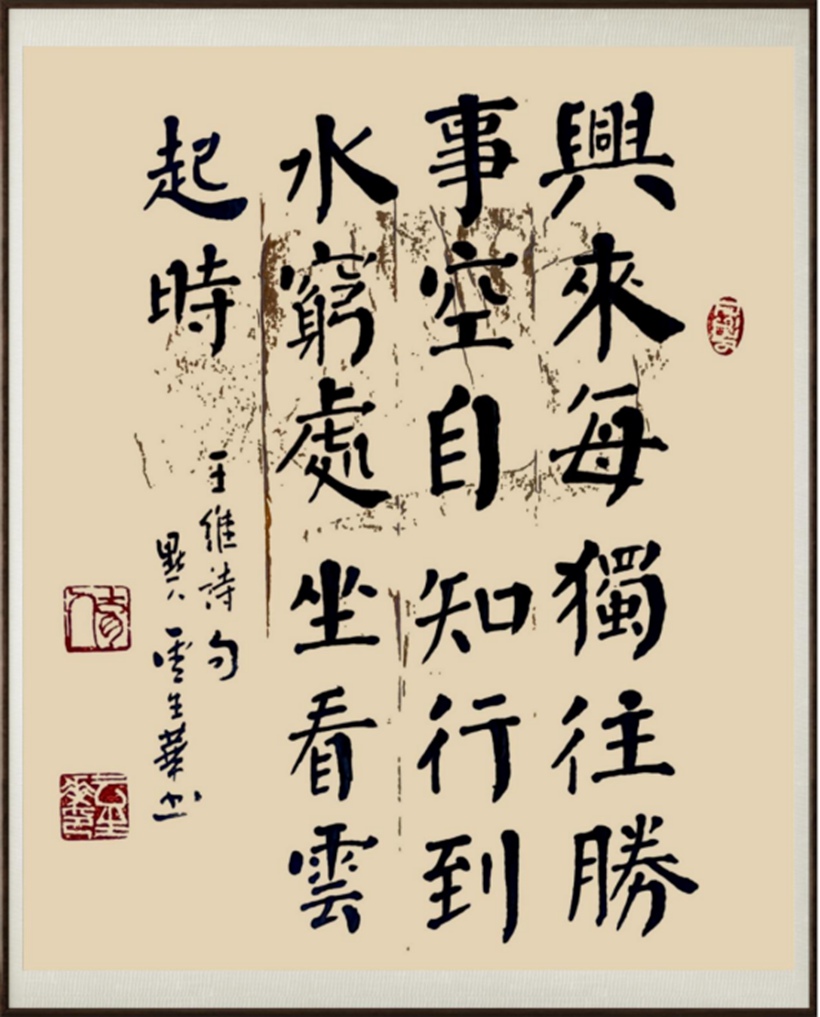 興來每獨往勝
事空自知行到
水窮處坐看雲
起時
王維詩句
雲生